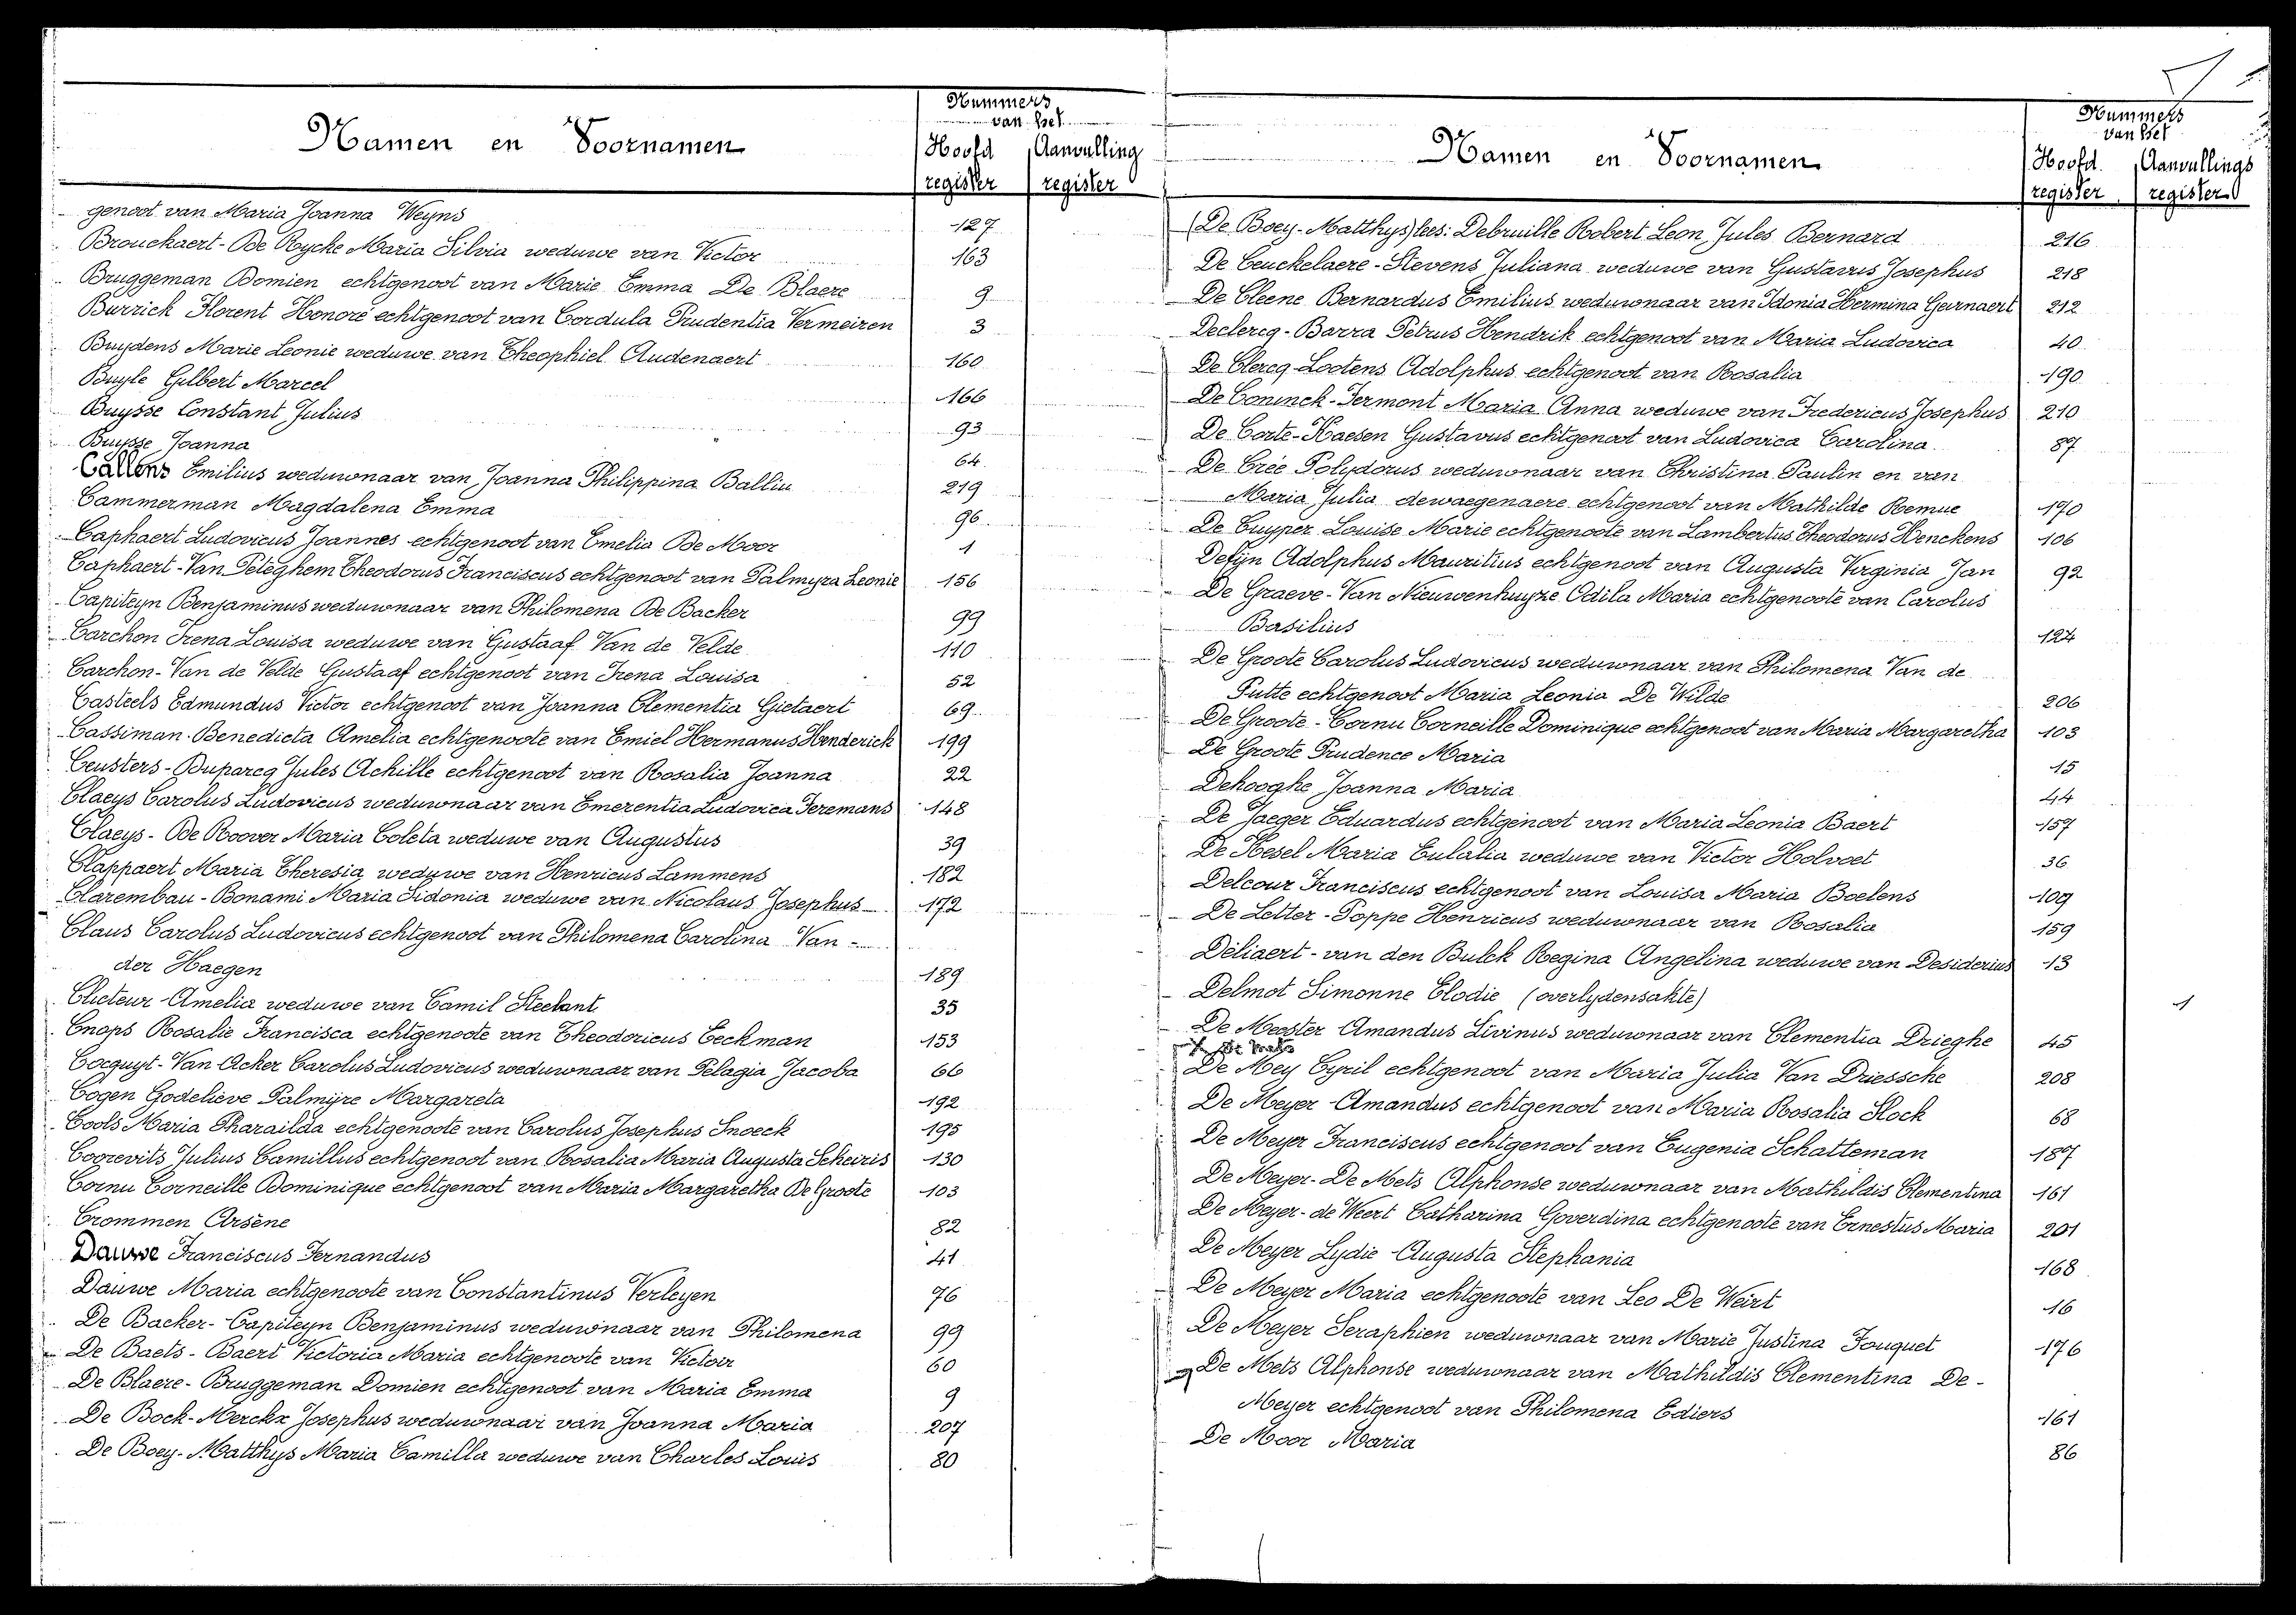 Namen en Voornamen
Nummers
van het
Hoofd Aanvulling
register register
genoot van Maria Joanna Weyns 127
Brouckaert-De Rycke Maria Silvia weduwe van Victor 163
Bruggeman Domien echtgenoot van Marie Emma De Blaere 9
Burrick Florent Honoré echtgenoot van Cordula Prudentia Vermeiren 3
Buydens Marie Leonie weduwe van Theophiel Audenaert 160
Buyle Gilbert Marcel 166
Buysse Constant Julius 93
Buysse Joanna 64
Callens Emilius weduwnaar van Joanna Philippina Balliu 219
Cammerman Magdalena Emma 96
Caphaert Ludovicus Joannes echtgenoot van Emelia De Moor 1
Caphaert-Van Peteghem Theodorus Franciscus echtgenoot van Palmyra Leonie 156
Capiteyn Benjaminus weduwnaar van Philomena De Backer 99
Carchon Irena Louisa weduwe van Gustaaf Van de Velde 110
Carchon-Van de Velde Gustaaf echtgenoot van Irena Louisa 52
Casteels Edmundus Victor echtgenoot van Joanna Clementia Gietaert 69
Cassiman Benedicta Amelia echtgenoote van Emiel Hermanus Henderick 199
Ceusters-Duparcq Jules Achille echtgenoot van Rosalia Joanna 22
Claeys Carolus Ludovicus weduwnaar van Emerentia Ludovica Teremans 148
Claeys-De Roover Maria Coleta weduwe van Augustus 39
Clappaert Maria Theresia weduwe van Henricus Lammens 182
Clarembau-Bonami Maria Sidonia weduwe van Nicolaus Josephus 172
Claus Carolus Ludovicus echtgenoot van Philomena Carolina Van-
der Haegen 189
Cluteur Amelia weduwe van Camil Steelant 35
Cnops Rosalie Francisca echtgenoote van Theodoricus Eeckman 153
Cocquyt-Van Acker Carolus Ludovicus weduwnaar van Pelagia Jacoba 66
Cogen Godelieve Palmyre Margareta 192
Cools Maria Pharailda echtgenoote van Carolus Josephus Snoeck 195
Coorevits Julius Camillus echtgenoot van Rosalia Maria Augusta Scheiris 130
Cornu Corneille Dominique echtgenoot van Maria Margaretha De Groote 103
Crommen Arsène 82
Dauwe Franciscus Fernandus 41
Dauwe Maria echtgenoote van Constantinus Verleyen 76
De Backer-Capiteyn Benjaminus weduwnaar van Philomena 99
De Baets-Baert Victoria Maria echtgenoote van Victoir 60
De Blaere-Bruggeman Domien echtgenoot van Maria Emma 9
De Bock-Merckx Josephus weduwnaar van Joanna Maria 207
De Boey-Matthys Maria Camilla weduwe van Charles Louis 80
Namen en Voornamen
Nummers
van het
Hoofd Aanvullings
register register
(De Boey-Matthys) lees: Debruille Robert Leon Jules Bernard 216
De Ceuckelaere-Stevens Juliana weduwe van Gustavus Josephus 218
De Cleene Bernardus Emilius weduwnaar van Idonia Hermina Geirnaert 212
Declercq-Barra Petrus Hendrik echtgenoot van Maria Ludovica 40
De Clercq-Lootens Adolphus echtgenoot van Rosalia 190
De Coninck-Termont Maria Anna weduwe van Fredericus Josephus 210
De Corte-Haesen Gustavus echtgenoot van Ludovica Carolina 87
De Crée Polydorus weduwnaar van Christina Paulin en van
Maria Julia dewaegenaere echtgenoot van Mathilde Remue 170
De Cuyper Louise Marie echtgenoote van Lambertus Theodorus Henckens 106
Defijn Adolphus Mauritius echtgenoot van Augusta Virginia Jan 92
De Graeve-Van Nieuwenhuyze Odila Maria echtgenoote van Carolus
Basilius 124
De Groote Carolus Ludovicus weduwnaar van Philomena Van de
Putte echtgenoot Maria Leonia De Wilde 206
De Groote-Cornu Corneille Dominique echtgenoot van Maria Margaretha 103
De Groote Prudence Maria 15
Dehooghe Joanna Maria 44
De Jaeger Eduardus echtgenoot van Maria Leonia Baert 157
De Kesel Maria Eulalia weduwe van Victor Holvoet 36
Delcour Franciscus echtgenoot van Louisa Maria Boelens 109
De Letter-Poppe Henricus weduwnaar van Rosalia 159
Deliaert-van den Bulck Regina Angelina weduwe van Desiderius 13
Delmot Simonne Elodie (overlydensakte) 1
De Meester Amandus Livinus weduwnaar van Clementia Drieghe 45
De Mey Cyril echtgenoot van Maria Julia Van Driessche 208
De Meyer Amandus echtgenoot van Maria Rosalia Stock 68
De Meyer Franciscus echtgenoot van Eugenia Schatteman 187
De Meyer-De Mets Alphonse weduwnaar van Mathildis Clementina 161
De Meyer-de Weert Catharina Goverdina echtgenoote van Ernestus Maria 201
De Meyer Lydie Augusta Stephania 168
De Meyer Maria echtgenoote van Leo De Weirt 16
De Meyer Seraphien weduwnaar van Marie Justina Fouquet 176
De Mets Alphonse weduwnaar van Mathildis Clementina De-
Meyer echtgenoot van Philomena Ediers 161
De Moor Maria 86